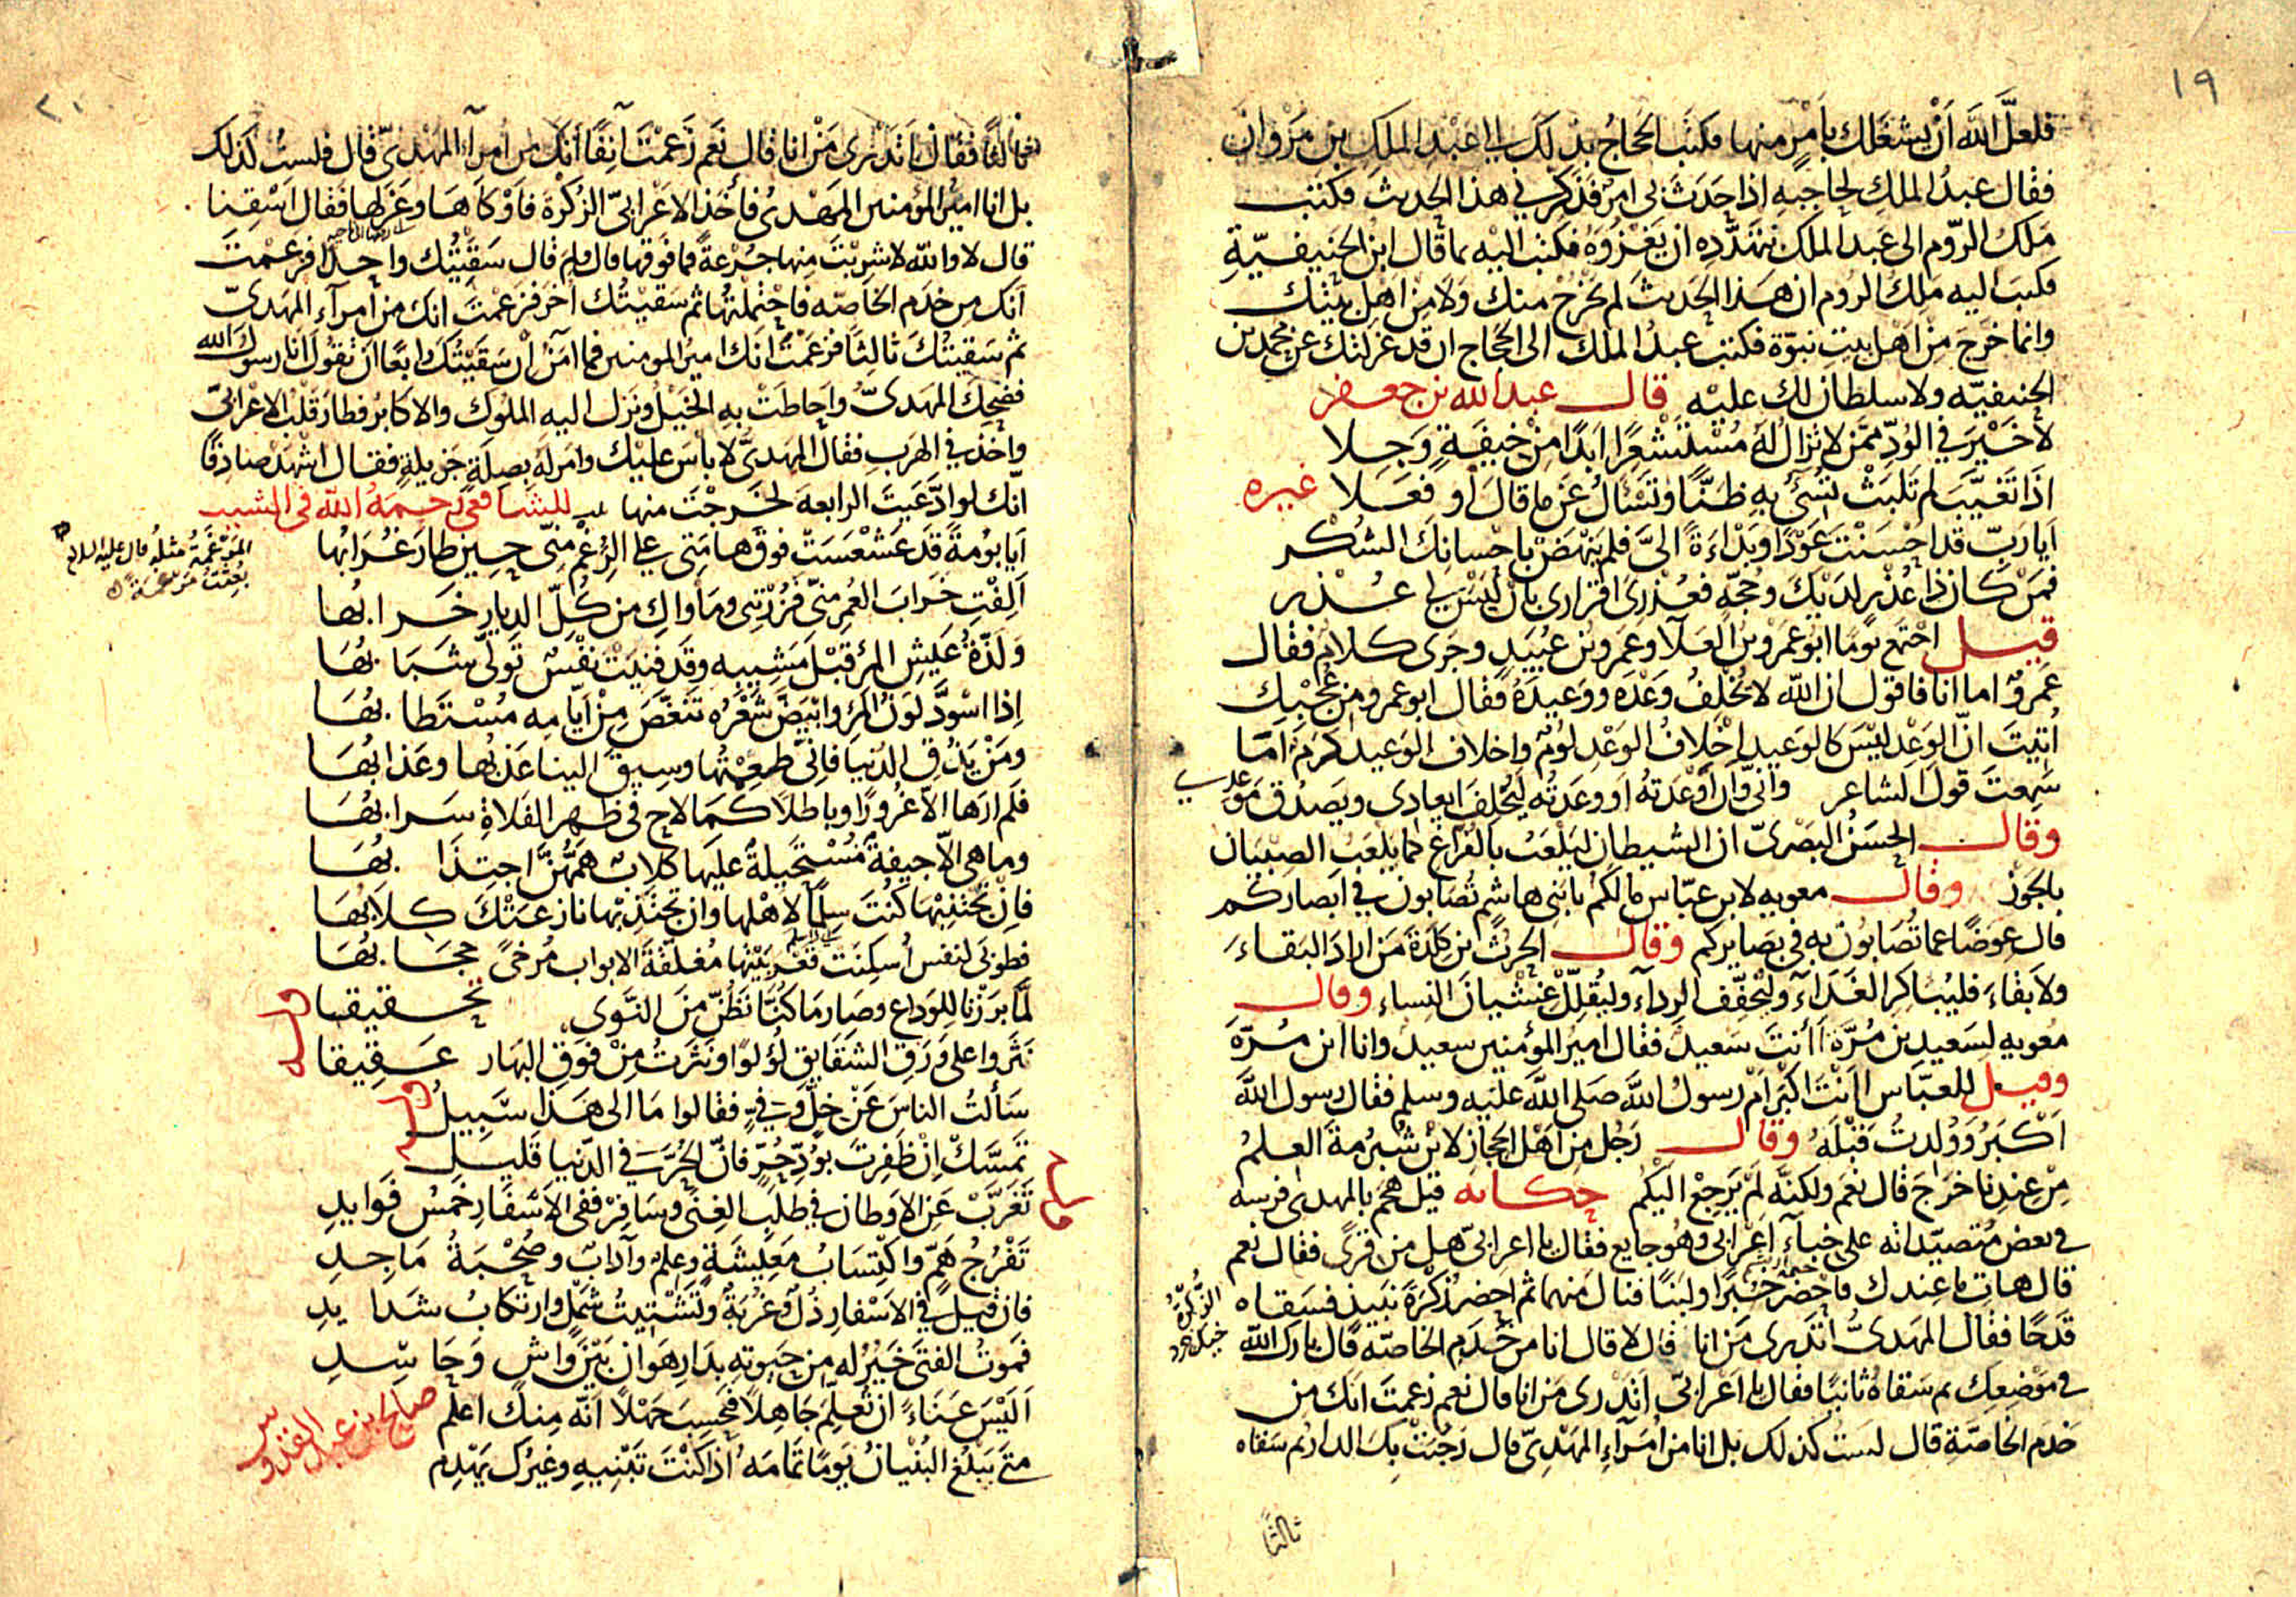 ١٩
فلعلَّ اللّٰه أنْ يشغلك بأمرٍ منها فكتب الحجاجُ بذلك الى عَبْدِ الملكِ بن مَرْوان
فقال عبدُ الملكِ لحاجبهِ اذا حَدَثَ لى امرٌ فذكِّرْنى هذا الحديث فكتب
مَلكُ الرّوم الى عَبد الملك يتهدَّده ان يَغْزوَهُ فكتب اليْه بما قال ابن الحَنيفيّةِ
فكتبَ اليه مَلِكُ الروم ان هذا الحديثَ لم يخرُجْ منك وَلا مِنْ اهل بيتك
وانما خَرجَ مِنْ اهل بيتِ نبوّة فكتب عبدُ الملك الى الحجاج ان قد عَزلتك عن محمد بن
الحنيفيّه ولا سلطان لك عليْه قال عبد اللّٰه بن جعفر
لا خَيْرَ فى الوُدّ ممّن لا تزال لهُ مُسْتشْعِرًا ابَدًا مِنْ خِيفَةٍ وَجِلا
اذَا تَغيَّبَ لم تَلبَثْ تُسئُ بهِ ظنًّا وتَسْأَلُ عَنْ ما قالَ او فعَلا غيره
اَيا رَبّ قد احْسَنْتَ عَوْدًا وبَدْاءَةً الىَّ فلم يَنْهَضْ باحْسانِكَ الشُكْر
فمَنْ كان ذا عُذْرٍ لدَيْكَ وحُجّةٍ فعُذْرى اقرارى بأن ليْسَ لى عُذر
قيل اجْتمع يومًا ابو عمرو بن العَلآ وعَمرو بن عبُيَدٍ وجَرى كلامٌ فقال
عَمروٌ اما انا فاقول ان اللّٰه لا يُخْلِفُ وعْدَه ووَعيدَهُ فقال ابو عمرو ومن عُجْبِك
اُتيتَ انّ الوَعْدَ ليْسَ كالوَعيد اخْلافُ الوَعْدِ لُؤمٌ واخلاف الوَعيد كرَمٌ اَمَّا
سَمِعتَ قولَ الشاعر وانّى وان أوْعَدتهُ او وعَدتُه ليُخْلِفَ ايعادى ويَصدُق مَوْعدى
وقال الحسَنُ البَصْرىّ ان الشيطان ليَلْعَبُ بالقرّاء كما يَلعَبُ الصِبيَان
بالجَوْز وقال معويه لابن عبّاس ما لكم يا بَنى هاشم تُصَابون فى ابصاركم
قال عِوضًا عما تُصَابون به فى بصَايركم وقال الحرثُ ابن كِلدَةَ مَن اراد البَقاءَ
ولا بَقاءَ فليُباكِر الغَدَآءَ وليُخفِّف الرداءَ وليُقلِلْ غِشْيانَ النِساء وقال
معويه لسَعيد بن مُرَّةَ اَأنتَ سَعيدٌ فقال اميرُ المؤمنين سعيدٌ وانا ابن مُرَّةَ
وقيل للعبّاس اَأنْتَ اكبرُ امْ رسولُ اللّٰه صَلى اللّٰه عَليْه وسلم فقال رسول اللّٰه
اَكْبَرُ وَوُلِدتُ قبْلَهُ وقال رَجُل مِن اهْل الحجاز لابْن شُبرُمةَ العلمُ
مِنْ عِندِنا خرَجَ قال نعَم ولكنّه لمْ يَرجِعْ اليْكم حكاىه قيل هَجَمَ بالمهدى فرسه
فى بعض مُتصيّداته على خِبآءِ اَعْرابى وهُو جايع فقال يا اعرابىّ هل من قِرًى فقال نعم
قال هاتِ ما عِندك فاحْضرَ خُبزًا ولبَنًا فنال منهما ثم احضر زُكْرةَ نبَيذٍ فسَقاه
قدَحًا فقال المهَدىُّ اتَدرى مَن انا قال لا قال انا من خَدَم الخاصّه قال بارك اللّٰه
فى مَوْضِعِك ثم سَقاهُ ثانيًا فقال يا اَعْرابىّ اتدْرى مَن انا قال نعم زعمتَ انك من
خَدَم الخاصّةِ قال لستُ كذلك بل انا من اُمَرآءِ المهَدِىّ قال رَحُبَتْ بِكَ الدار ثم سَقاه
ثالثًا
٢٠
ثالثًا فقال اَتدْرى مَنْ انا قال نَعم زَعمْتَ آنِفًا انك من امرآءِ المهْدىّ قال فلستُ كذلك
بل انا اميرُ المؤمنين المهَدْىُ فأَخذ الاعْرابىّ الزُكْرةَ فأَوْكاَهَا وعَزلها فقال اَسْقِنا
قال لا واللّٰه لا شربْتَ مِنها جُرْعَةً فما فوقها قال ولمَ قال سَقيْتُك واحدًا فزعمْتَ
اَنك من خدَم الخاصّه فاحْتملتُها ثم سَقيْتُك آخَر فزعَمْتَ انك من امرآءِ المهَدىّ
ثم سَقيتُكَ ثالِثًا فزعَمْتَ انك اميرُ المومنين فما آمَنُ اَنْ سَقَيْتُكَ رابعًا اَنْ تقولَ انا رسولُ اللّٰه
فضَحِكَ المهَدىُّ واحَاطَتْ بهِ الخَيْلُ ونزل اليه الملُوك والاكابرُ فطارَ قلبُ الاعْرابىّ
واخذ فى الهَربِ فقال المهَدىُّ لا بأسَ عليْك وامَرلَه بصِلةٍ جزيلةٍ فقال اشْهَدُ صَادِقًا
انّك لو ادَّعَيتَ الرابعه لخَرجْتَ منها للشافعى رَحمهُ اللّٰه فى الشيب
اَيا بُومةً قَدْ عَشْعَشَتْ فوقَ هامَتى على الرُغمِ مِنّى حين طارَ غُرَابُها
اَلِفْتِ خَرابَ العُمرِ منّى فَزُرْتِنى ومَأواكِ من كُلّ الديارِ خَرابُها
وَلذّةُ عَيشِ المرْءِ قبْلَ مَشيبِه وقَد فنيَتْ نَفْسٌ تَولَّى شَبَابُهَا
اِذا اسْودَّ لَوْنُ المرءِ وابْيَضَّ شَعْرُه تنَغّصَ مِنْ اَيّامِه مُسْتَطابُهَا
ومَنْ يَذُقِ الدّنيا فاِنّى طَعِمْتُها وسِيقَ الينا عَذْبُها وعَذابُهَا
فلَم ارَها الّا غُرورًا وباطلًا كَمَا لاح فى ظهر الفَلاةِ سَرابُهَا
وما هى الّا جيفةٌ مُسْتحَيلةٌ عليَها كلابٌ هَمُّهُنَّ اجتِذَابُهَا
فاِن تجْتَنِبْها كُنْتَ سِلمًا لاهْلها وان تجتَذِبْها نازعَتْكَ كلابُهَا
فطوبى لنفس اُسكِنَتْ قعْرَ بَيْتها مُغلّقةَ الابواب مُرخىً حجَابُهَا
لمَّا برَزنا للِوَدَاع وصَار مَا كُنَّا نَظُنّ مِنَ النَوى تحقيقا
نَثَروا على وَرَقِ الشقَايق لُؤلؤًا ونَثَرتُ مِنْ فوَقِ البهَار عَقيقا
وله
سَألتُ الناسَ عَنْ خِلّ وَفِىٍّ فقالوا مَا الى هَذا سَبيلُ
تمَسّكْ اِنْ ظفِرتَ بوُدّ حُرّ فانّ الحُرّ فى الدّنيا قَليلُ
تَغَرَّبْ عَنِ الاوطان فى طلَبِ الغِنَى وسَافِرْ ففى الاَسْفَارِ خَمْسُ فَوايدِ
تَفَرُجُ هَمٍّ واكْتِسَابُ مَعيشَةٍ وعِلمٌ وآدابٌ وصُحْبَةُ مَاجدِ
فان قيل فى الاَسْفار ذُلّ وغُرْبَةٌ وتَشْتيتُ شَمْلٍ وارتكابُ شَدايدِ
فمَوتُ الفتَى خَيْرُ له مِن حَيوتِهِ بدَارِ هَوانٍ بَيْنَ واشٍ وَحَاسِدِ
اَليْسَ عَنَاءً ان تُعلِّمَ جَاهِلًا فيَحسِبَ جَهْلًا انّه مِنكَ اعلَم
متَى يَبْلغُ البُنْيانُ يَومًا تمَامَهُ اذا كنْتَ تَبْنِيهِ وغيرُك يَهْدِم
صالح ابن عبد القدوس